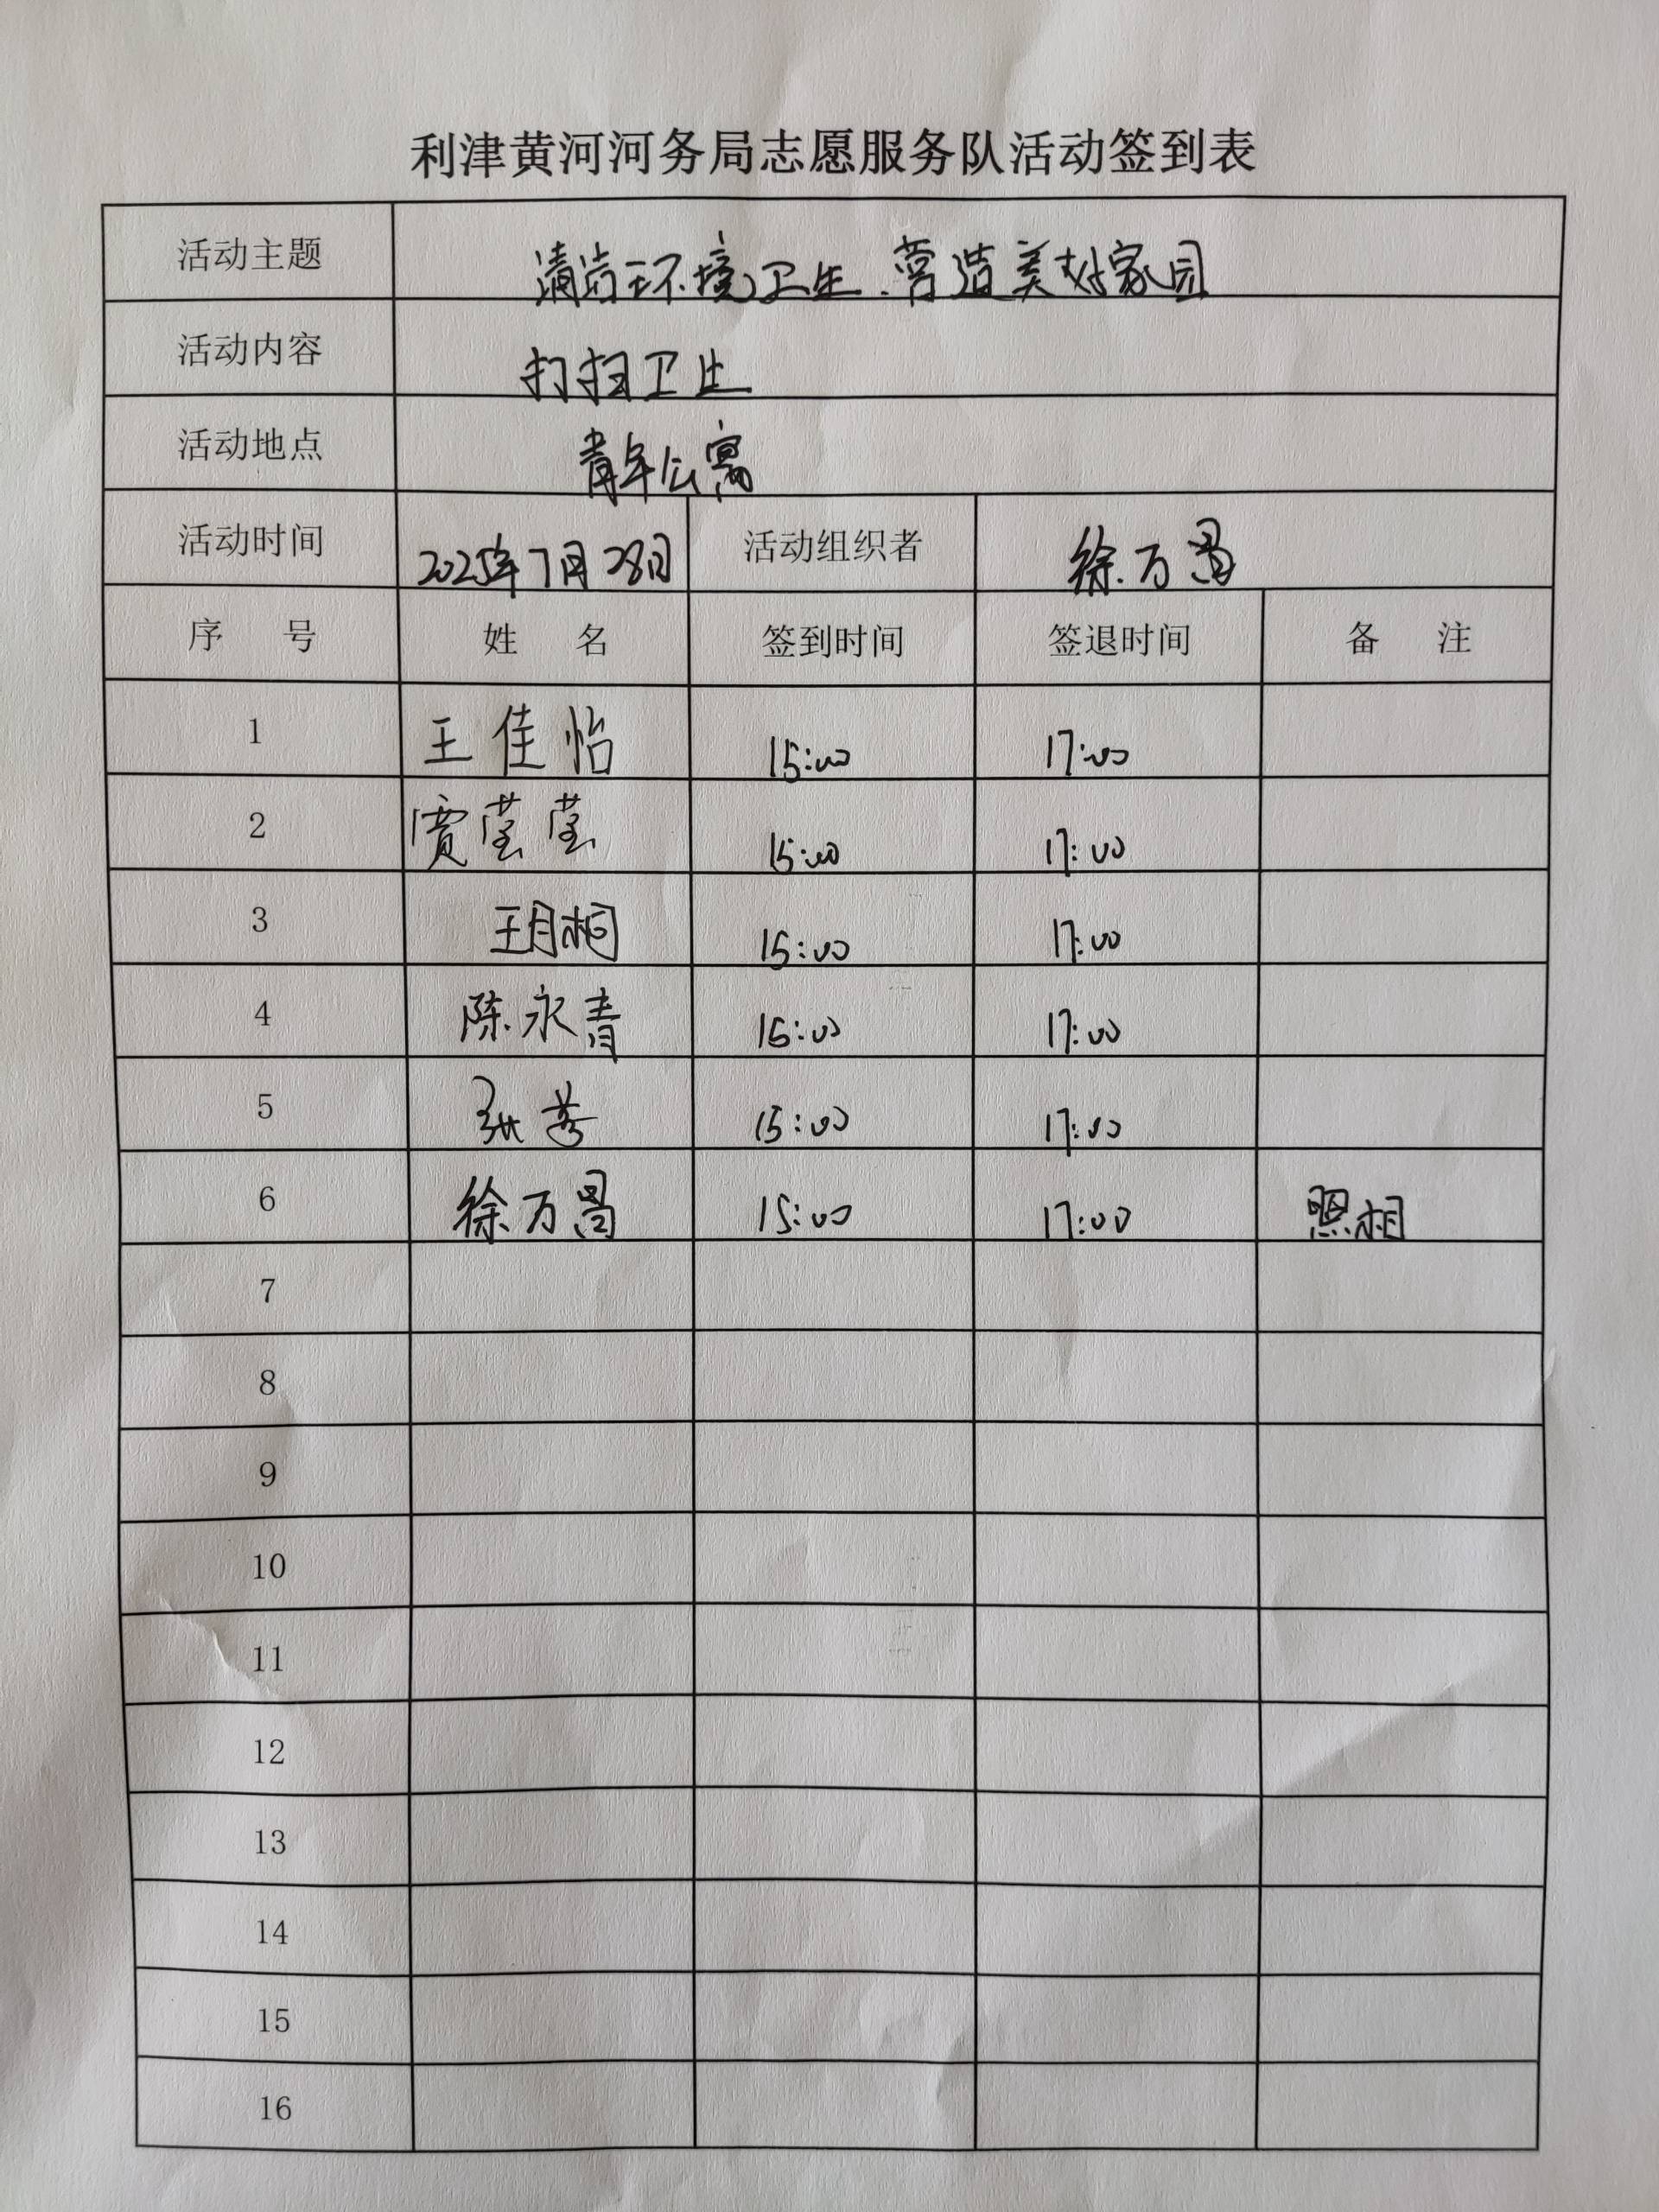 利津黄河河务局志愿服务队活动签到表
活动主题 清洁环境卫生.营造美好家园
活动内容 打扫卫生
活动地点 青年公寓
活动时间 2025年7月28日 活动组织者 徐万昌
序 号 姓 名 签到时间 签退时间 备 注
1 王佳怡 15:00 17:00
2 贾莹莹 15:00 17:00
3 王月桐 15:00 17:00
4 陈永青 15:00 17:00
5 15:00 17:00
6 徐万昌 15:00 17:00 照相
7
8
9
10
11
12
13
14
15
16